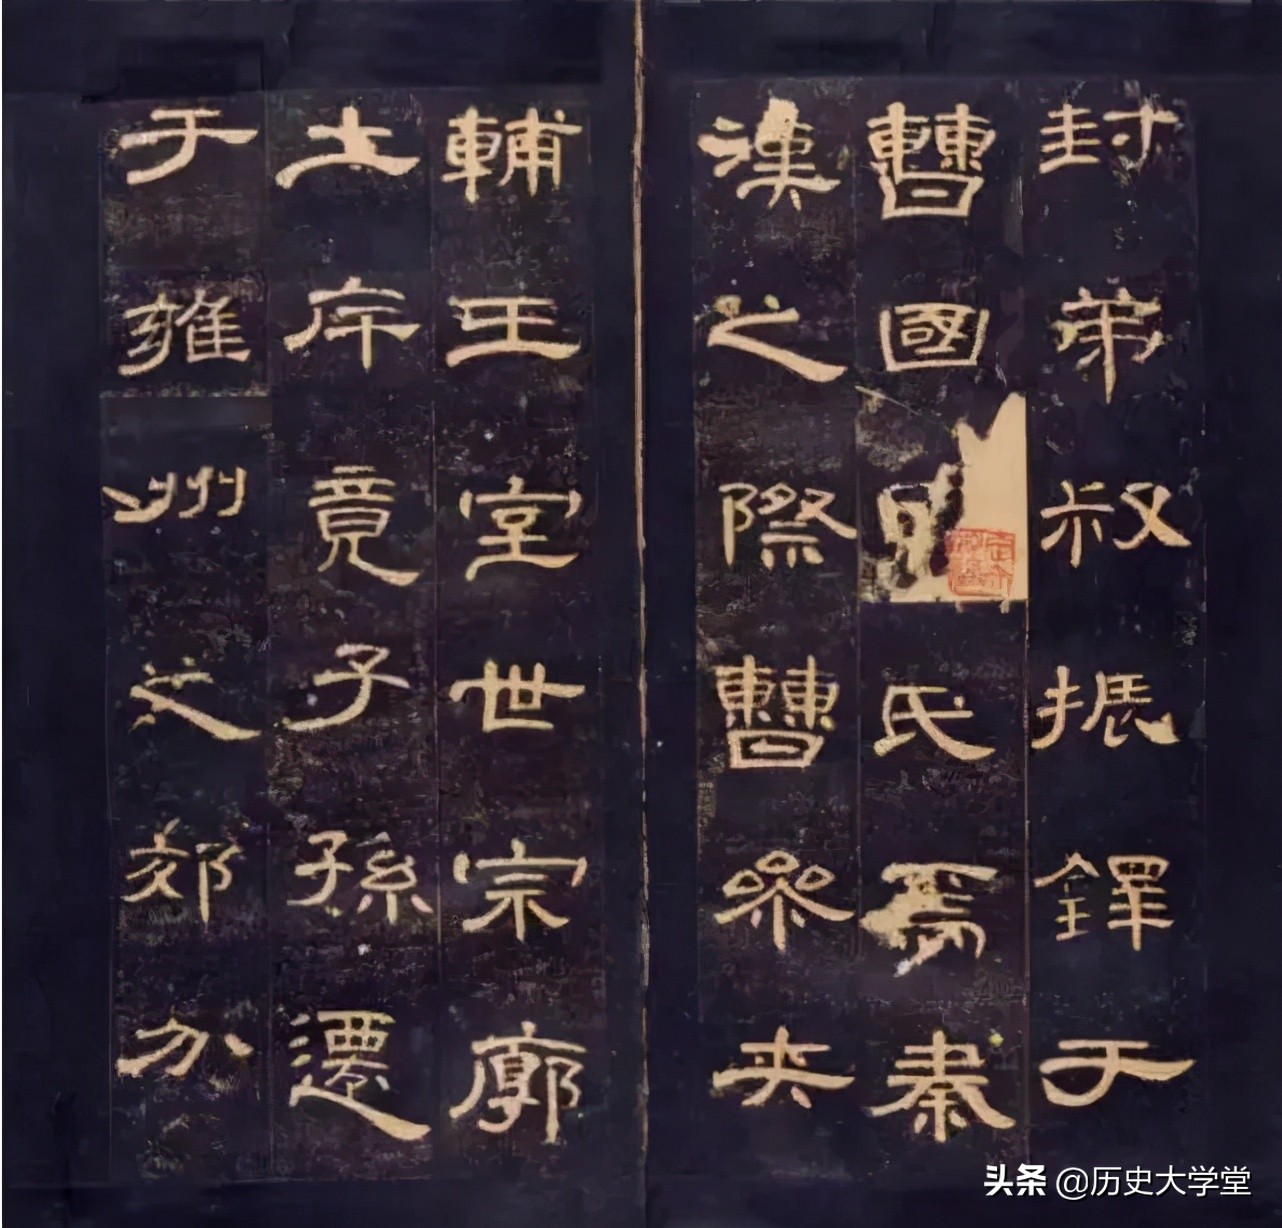 封弟叔振鐸于
曹國氏焉秦
漢之際曹參夾
輔王室世宗廓
土斥竟子孫遷
于雍州之郊分
头条 @历史大学堂